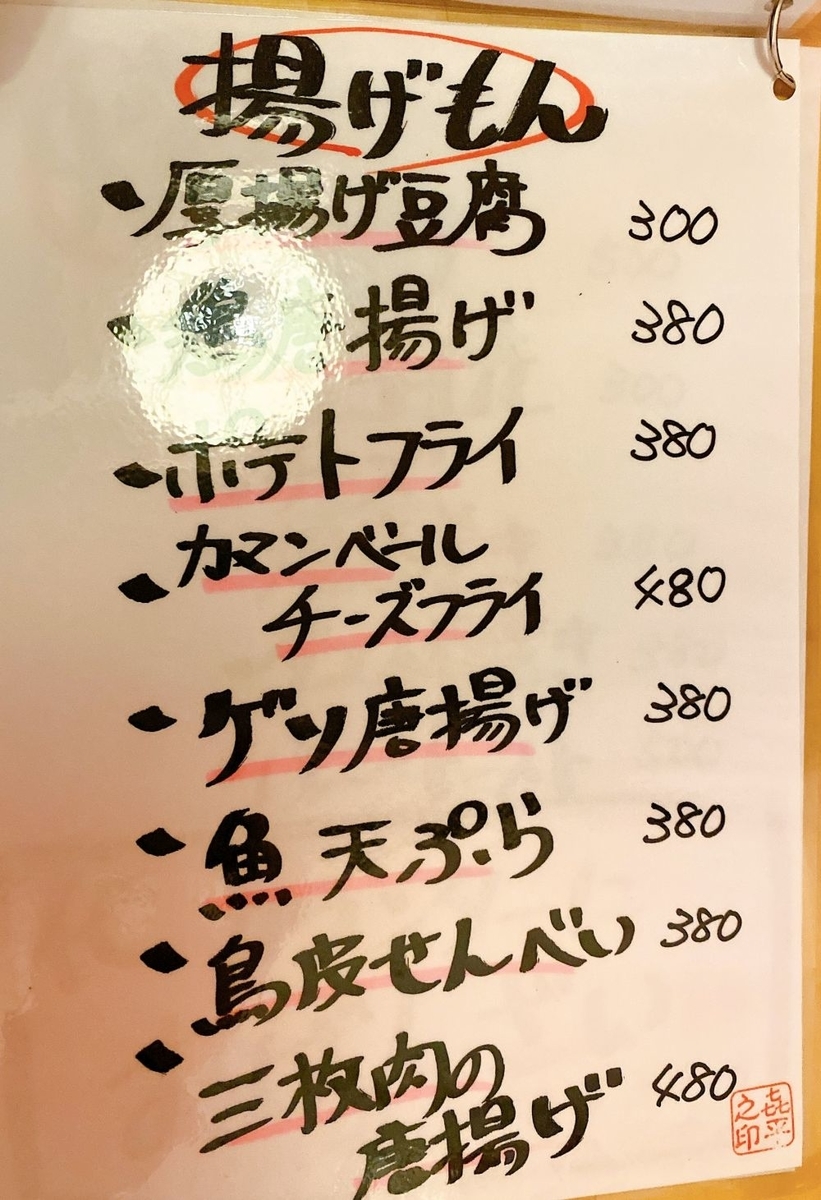 揚げもん
厚揚げ豆腐 300
唐揚げ 380
ポテトフライ 380
カマンベール
チーズフライ 480
ゲソ唐揚げ 380
魚天ぷら 380
鳥皮せんべい 380
三枚肉の
唐揚げ 480
喜平
之印